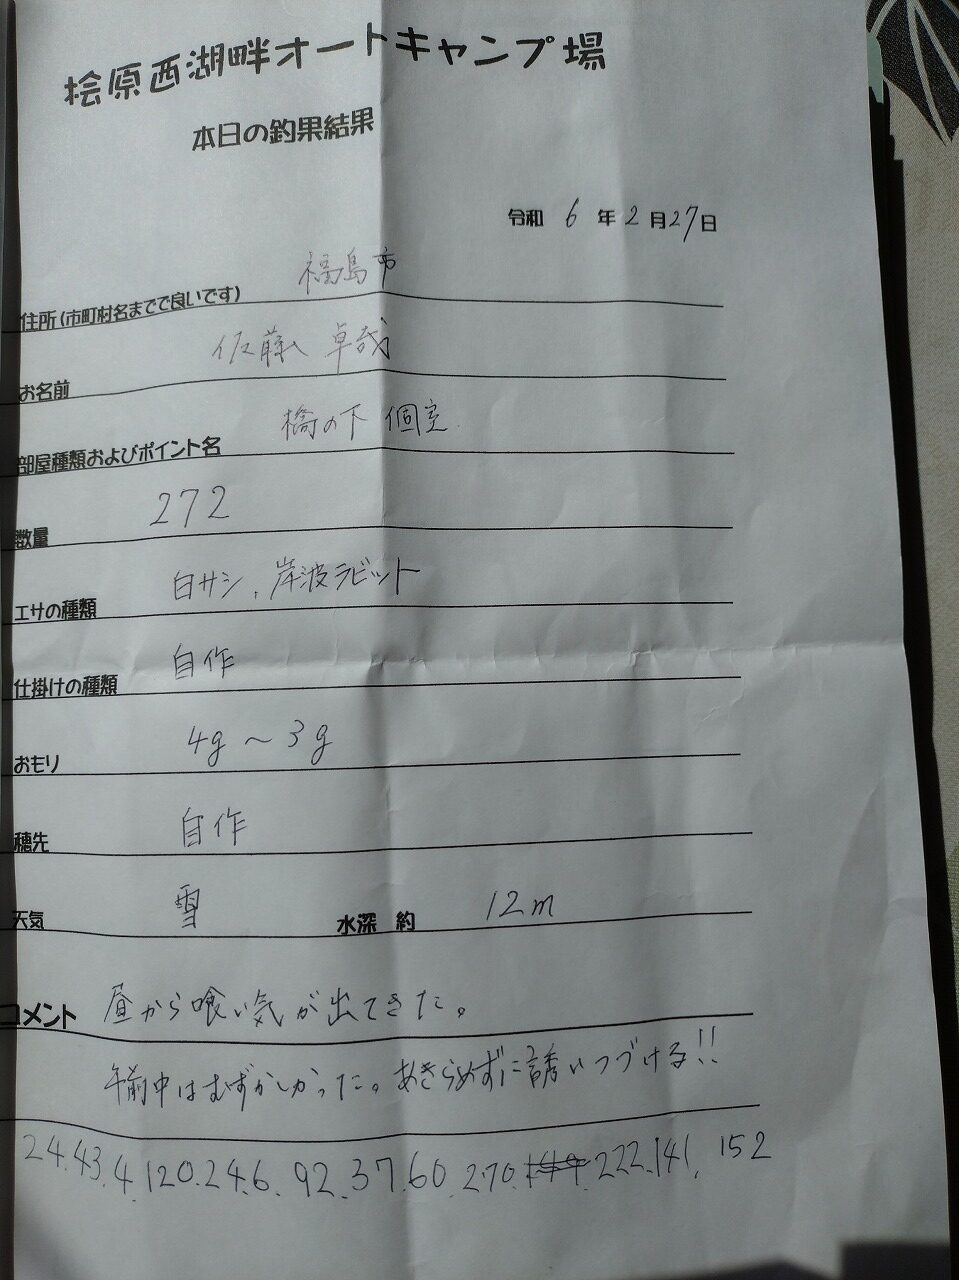 桧原西湖畔オートキャンプ場
本日の釣果結果
令和 6 年 2 月 27 日
住所(市町村名までで良いです) 福島市
お名前 佐藤 卓哉
部屋種類およびポイント名 橋の下 個室
数量 272
エサの種類 白サシ、岸波ラビット
仕掛けの種類 自作
おもり 4g～3g
穂先 自作
天気 雪 水深 約 12m
コメント 昼から喰い気が出てきた。
午前中はむずかしかった。あきらめずに誘いつづける!!
24.43.4.120.246.92.37.60.270.222.141.152